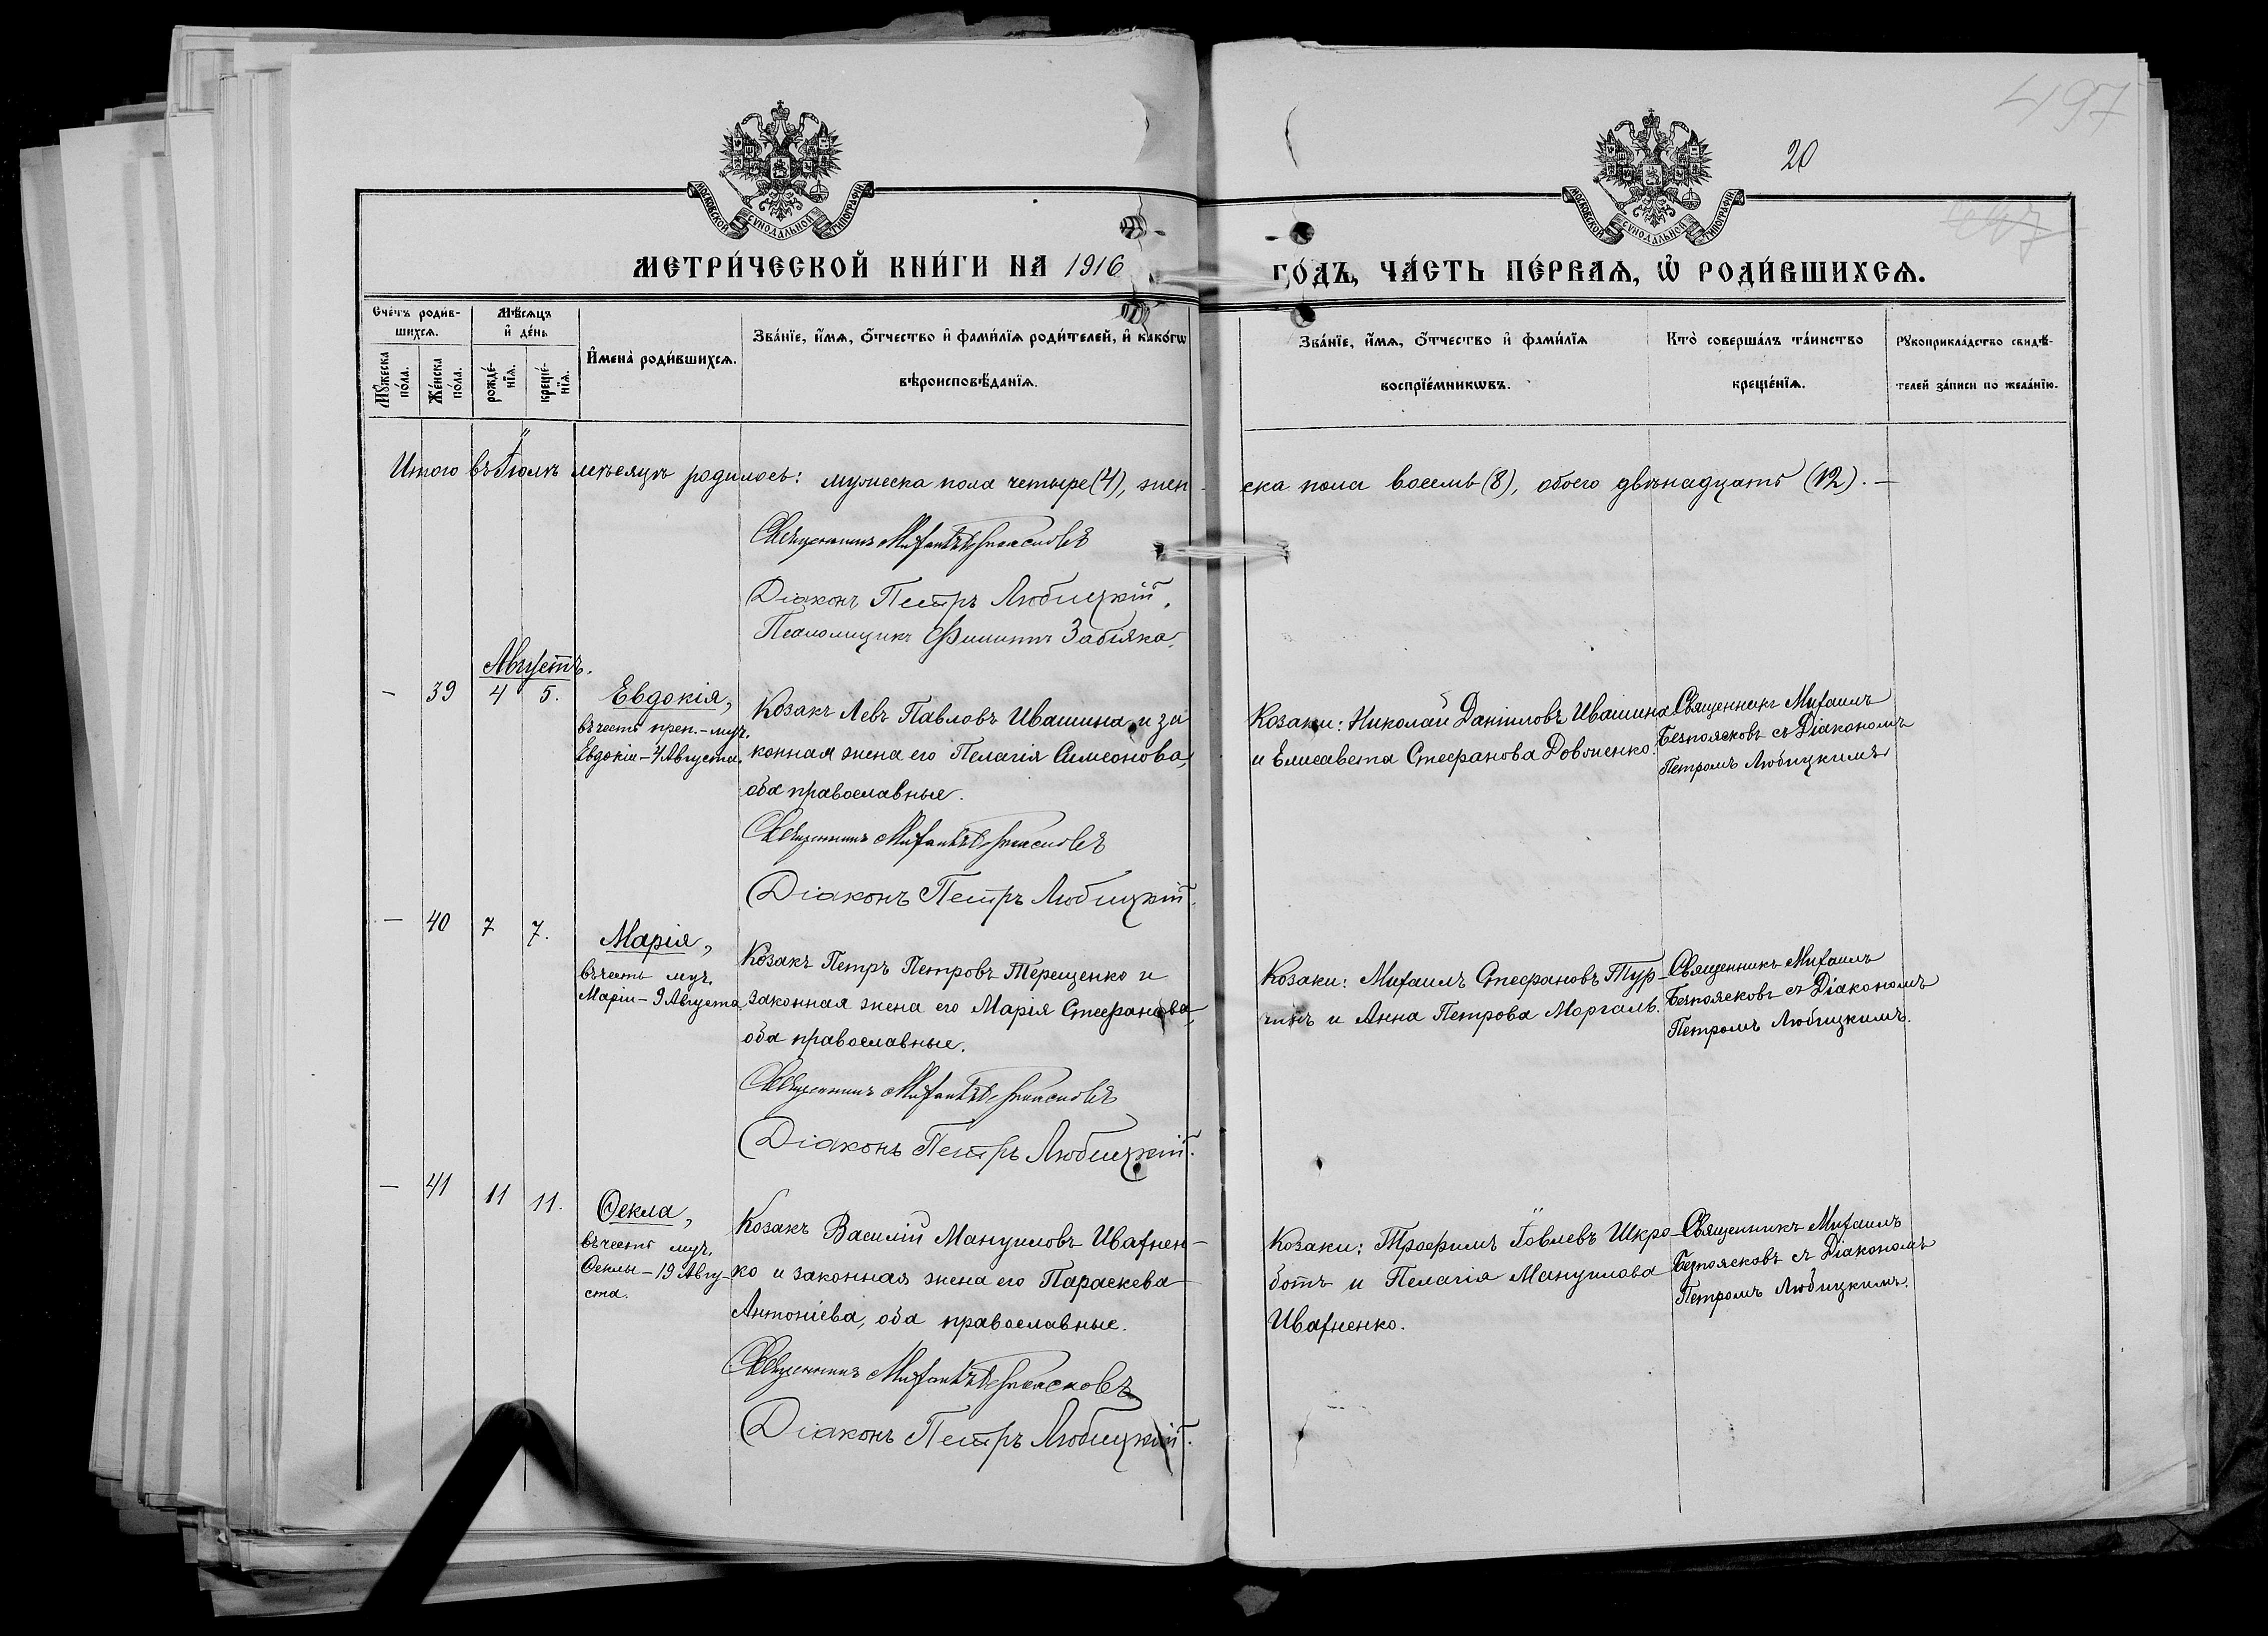 497
20
МОСКОВСКОЙ СѴНОДАЛЬНОЙ ТИПОГРАФІИ
МОСКОВСКОЙ СѴНОДАЛЬНОЙ ТИПОГРАФІИ
МЕТРИ́ЧЕСКОЙ КНИ́ГИ НА 1916
ГО́ДЪ, ЧА́СТЬ ПЕ́РВАѦ, Ѽ РОДИ́ВШИХСѦ.
Сче́тъ роди́в-
шихсѧ.
Мꙋ́жеска по́ла.
Же́нска по́ла.
Мѣ́сѧцъ
и҆ де́нь
рожде́-
нїѧ.
креще́-
нїѧ.
И҆мена̀ роди́вшихсѧ.
Зва́нїе, и҆́мѧ, ѻ҆́тчество и҆ фами́лїѧ роди́телей, и҆ како́гѡ
вѣроисповѣ́данїѧ.
Зва́нїе, и҆́мѧ, ѻ҆́тчество и҆ фами́лїѧ
воспрїе́мникѡвъ.
Кто̀ соверша́лъ та́инство
креще́нїѧ.
Рꙋкоприкла́дство свидѣ́-
телей за́писи по жела́нїю.
Итого въ Іюлѣ мѣсяцѣ родилось: мужеска пола четыре (4), жен-
ска пола восемь (8), обоего двѣнадцать (12). —
Священникъ Михаилъ Безпоясковъ
Діаконъ Петръ Любицкій.
Псаломщикъ Филиппъ Забіяка.
Августъ.
— 39 4 5.
Евдокія,
въ честь преп.-муч.
Евдокіи – 4 Августа.
Козакъ Левъ Павловъ Ивашина и за
конная жена его Пелагія Симеонова,
оба православные.
Священникъ Михаилъ Безпоясковъ
Діаконъ Петръ Любицкій.
Козаки: Николай Даніиловъ Ивашина
и Елисавета Стефанова Довженко.
Священникъ Михаилъ
Безпоясковъ съ Діакономъ
Петромъ Любицкимъ
— 40 7 7.
Марія,
въ честь муч.
Маріи – 9 Августа.
Козакъ Петръ Петровъ Терещенко и
законная жена его Марія Стефанова,
оба православные.
Священникъ Михаилъ Безпоясковъ
Діаконъ Петръ Любицкій.
Козаки: Михаилъ Стефановъ Тур-
чинъ и Анна Петрова Моргаль.
Священникъ Михаилъ
Безпоясковъ съ Діакономъ
Петромъ Любицкимъ.
— 41 11 11.
Ѳекла,
въ честь муч.
Ѳеклы – 19 Авгу-
ста.
Козакъ Василій Мануиловъ Ивахнен-
ко и законная жена его Параскева
Антоніева, оба православные.
Священникъ Михаилъ Безпоясковъ
Діаконъ Петръ Любицкій.
Козаки: Трофимъ Іовлевъ Шкро-
ботъ и Пелагія Мануилова
Ивахненко.
Священникъ Михаилъ
Безпоясковъ съ Діакономъ
Петромъ Любицкимъ.